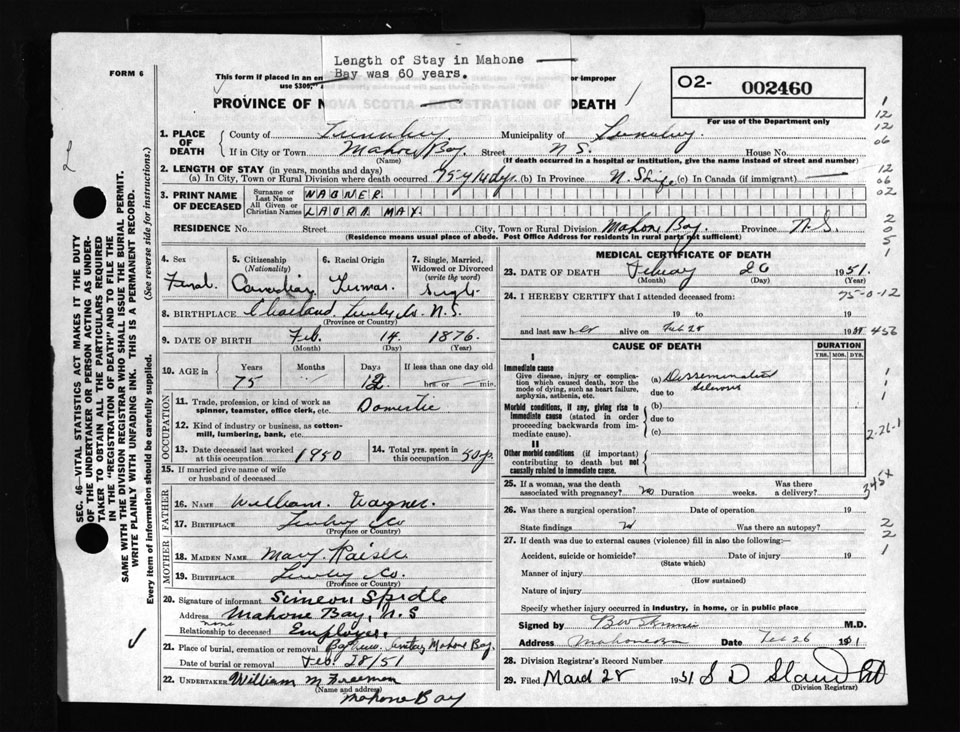 Length of Stay in Mahone
Bay was 60 years.
FORM 6
This form if placed in an en or improper
use $300,
PROVINCE OF NOVA SCOTIA REGISTRATION OF DEATH
O2- 002460
For use of the Department only
1. PLACE OF DEATH
County of Lunenburg Municipality of Lunenburg
If in City or Town Mahone Bay. Street N S. House No.
(Name) (If death occurred in a hospital or institution, give the name instead of street and number)
2. LENGTH OF STAY (in years, months and days)
(a) In City, Town or Rural Division where death occurred 75 y 14 dys. (b) In Province N. S. life (c) In Canada (if immigrant)
3. PRINT NAME OF DECEASED
Surname or Last Name WAGNER.
All Given or Christian Names LAURA MAY.
RESIDENCE No. Street City, Town or Rural Division Mahone Bay. Province N.S.
(Residence means usual place of abode. Post Office Address for residents in rural parts not sufficient)
4. Sex
Femal.
5. Citizenship (Nationality)
Canadian
6. Racial Origin
German.
7. Single, Married, Widowed or Divorced (write the word)
Single
8. BIRTHPLACE Lunbg Co. N.S.
(Province or Country)
9. DATE OF BIRTH Feb. 14. 1876.
(Month) (Day) (Year)
10. AGE in Years Months Days If less than one day old
75 12 hrs. or min.
OCCUPATION
11. Trade, profession, or kind of work as spinner, teamster, office clerk, etc. Domestic
12. Kind of industry or business, as cotton-mill, lumbering, bank, etc.
13. Date deceased last worked at this occupation 1950
14. Total yrs. spent in this occupation 50 y.
15. If married give name of wife or husband of deceased
FATHER
16. Name William Wagner.
17. Birthplace Lunbg Co
(Province or Country)
MOTHER
18. Maiden Name Mary Kaiser
19. Birthplace Lunbg Co.
(Province or Country)
20. Signature of informant Simeon Spidle
Address Mahone Bay, N.S
Relationship to deceased none Employer.
21. Place of burial, cremation or removal Mahone Bay.
Date of burial or removal Feb 28/51
22. UNDERTAKER William M Freeman
(Name and address)
Mahone Bay
MEDICAL CERTIFICATE OF DEATH
23. DATE OF DEATH February 26 1951.
(Month) (Day) (Year)
24. I HEREBY CERTIFY that I attended deceased from:
19 to 19
and last saw her alive on Feb 25 19
CAUSE OF DEATH
DURATION
YRS. MOS. DYS.
I
Immediate cause
Give disease, injury or complication which caused death, NOT the mode of dying, such as heart failure, asphyxia, asthenia, etc.
(a) Disseminated
Sclerosis
due to
Morbid conditions, if any, giving rise to immediate cause (stated in order proceeding backwards from immediate cause).
(b)
due to
(c)
II
Other morbid conditions (if important) contributing to death but not causally related to immediate cause.
25. If a woman, was the death associated with pregnancy? no Duration weeks. Was there a delivery?
26. Was there a surgical operation? Date of operation 19
State findings Was there an autopsy?
27. If death was due to external causes (violence) fill in also the following:—
Accident, suicide or homicide? Date of injury 19
(State which)
Manner of injury
(How sustained)
Nature of injury
Specify whether injury occurred in industry, in home, or in public place
Signed by M.D.
Address Mahone Bay Date Feb 26 1951
28. Division Registrar's Record Number
29. Filed March 28 1951
(Division Registrar)
SEC. 46—VITAL STATISTICS ACT MAKES IT THE DUTY
OF THE UNDERTAKER OR PERSON ACTING AS UNDER-
TAKER TO OBTAIN ALL THE PARTICULARS REQUIRED
IN THE "REGISTRATION OF DEATH" AND TO FILE THE
SAME WITH THE DIVISION REGISTRAR WHO SHALL ISSUE THE BURIAL PERMIT.
WRITE PLAINLY WITH UNFADING INK. THIS IS A PERMANENT RECORD.
Every item of information should be carefully supplied. (See reverse side for instructions.)
1
12
12
06
12
06
02
2
0
5
1
75-0-12
456
1
1
1
2-26-1
345x
2
2
1